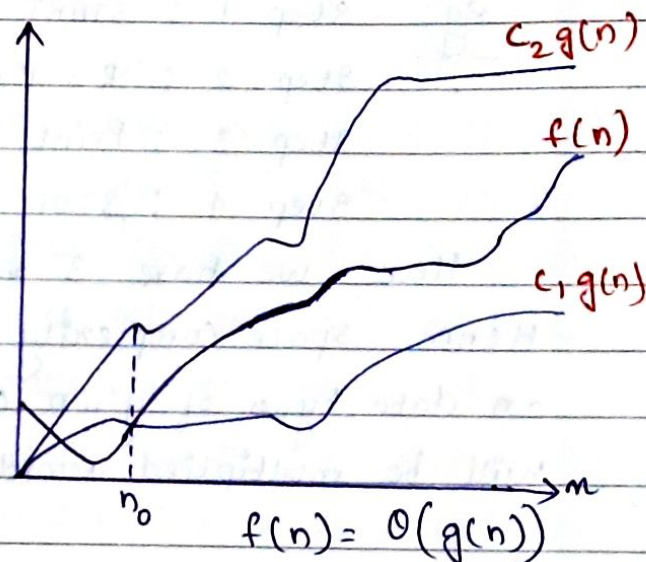 C₂g(n)
f(n)
C₁g(n)
n
n₀
f(n) = Θ(g(n))